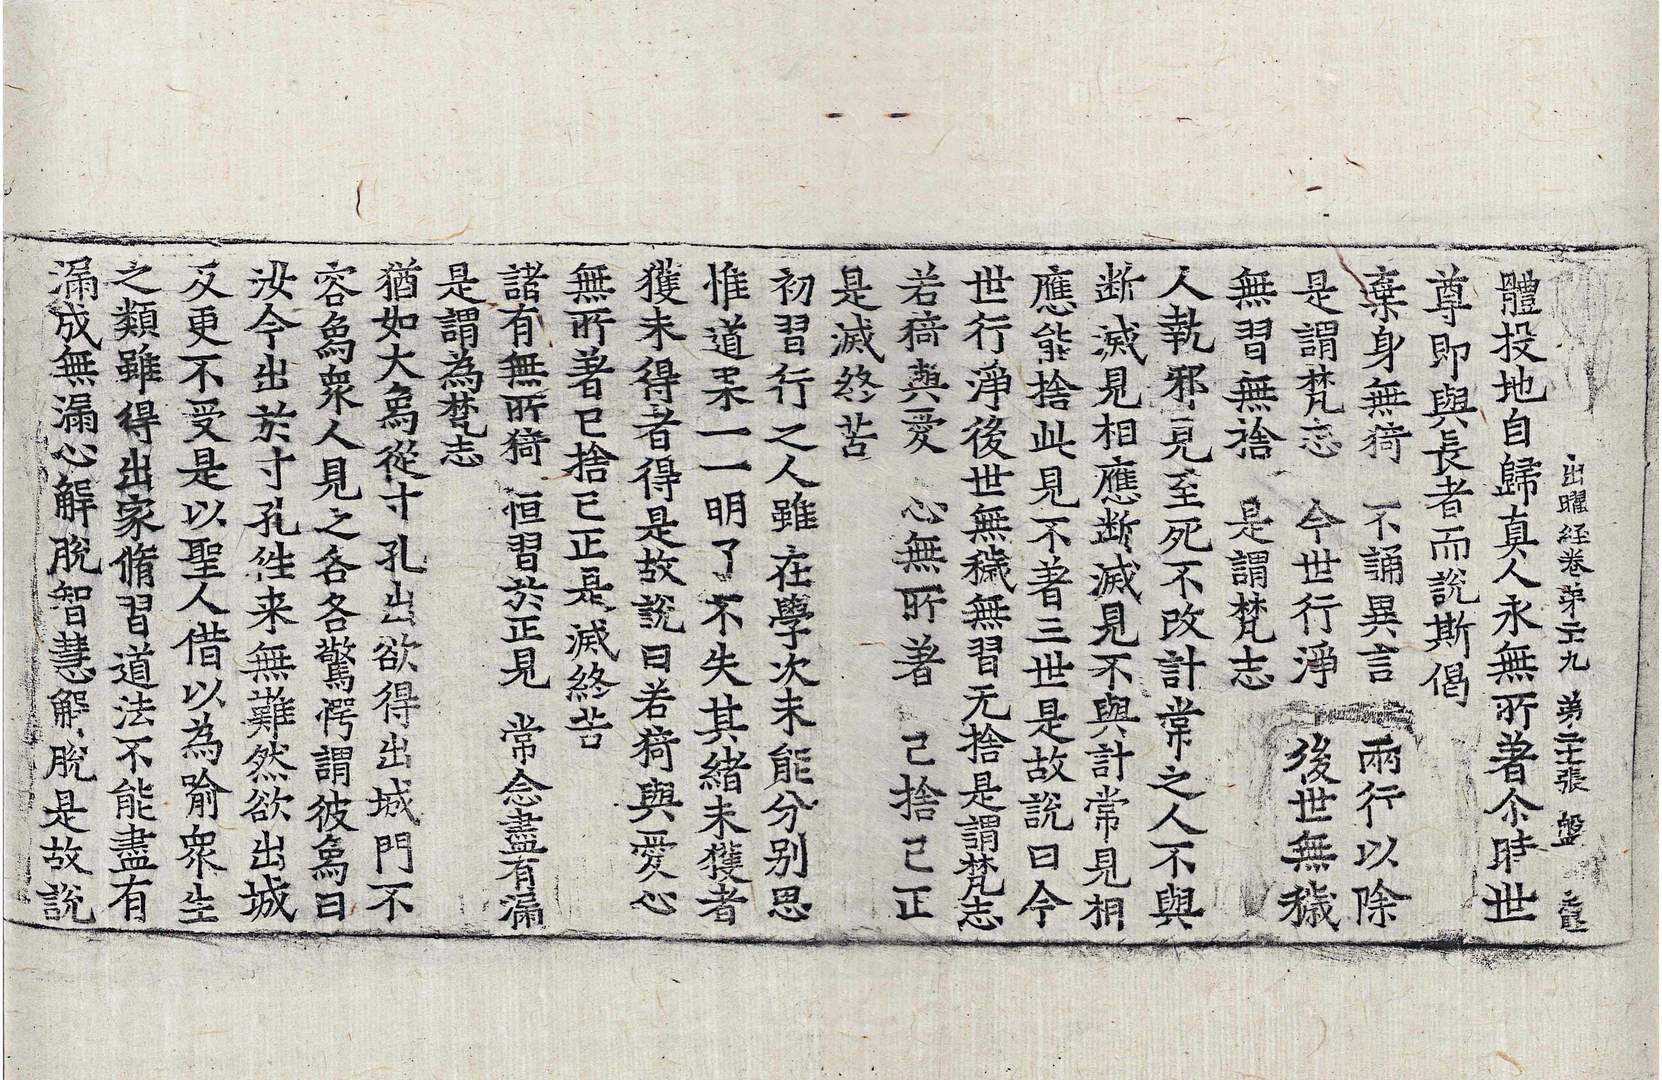 出曜経卷苐二十九　苐二十二張　盤
體投地自歸真人永無所著尒時世
尊即與長者而說斯偈
棄身無猗　不誦異言　兩行以除
是謂梵志　今世行淨　後世無穢
無習無捨　是謂梵志
人執邪見至死不改計常之人不與
断滅見相應断滅見不與計常見相
應能捨此見不著三世是故說曰今
世行淨後世無穢無習无捨是謂梵志
若猗與愛　心無所著　已捨已正
是滅終苦
初習行之人雖在學次未能分别思
惟道果一一明了不失其緒未獲者
獲未得者得是故說曰若猗與愛心
無所著已捨已正是滅終苦
諸有無所猗　恒習於正見　常念盡有漏
是謂為梵志
猶如大象從寸孔出欲得出城門不
容象衆人見之各各驚愕謂彼象曰
汝今出於寸孔徃来無難然欲出城
反更不受是以聖人借以為喻衆生
之類雖得出家脩習道法不能盡有
漏成無漏心解脫智慧解脫是故說